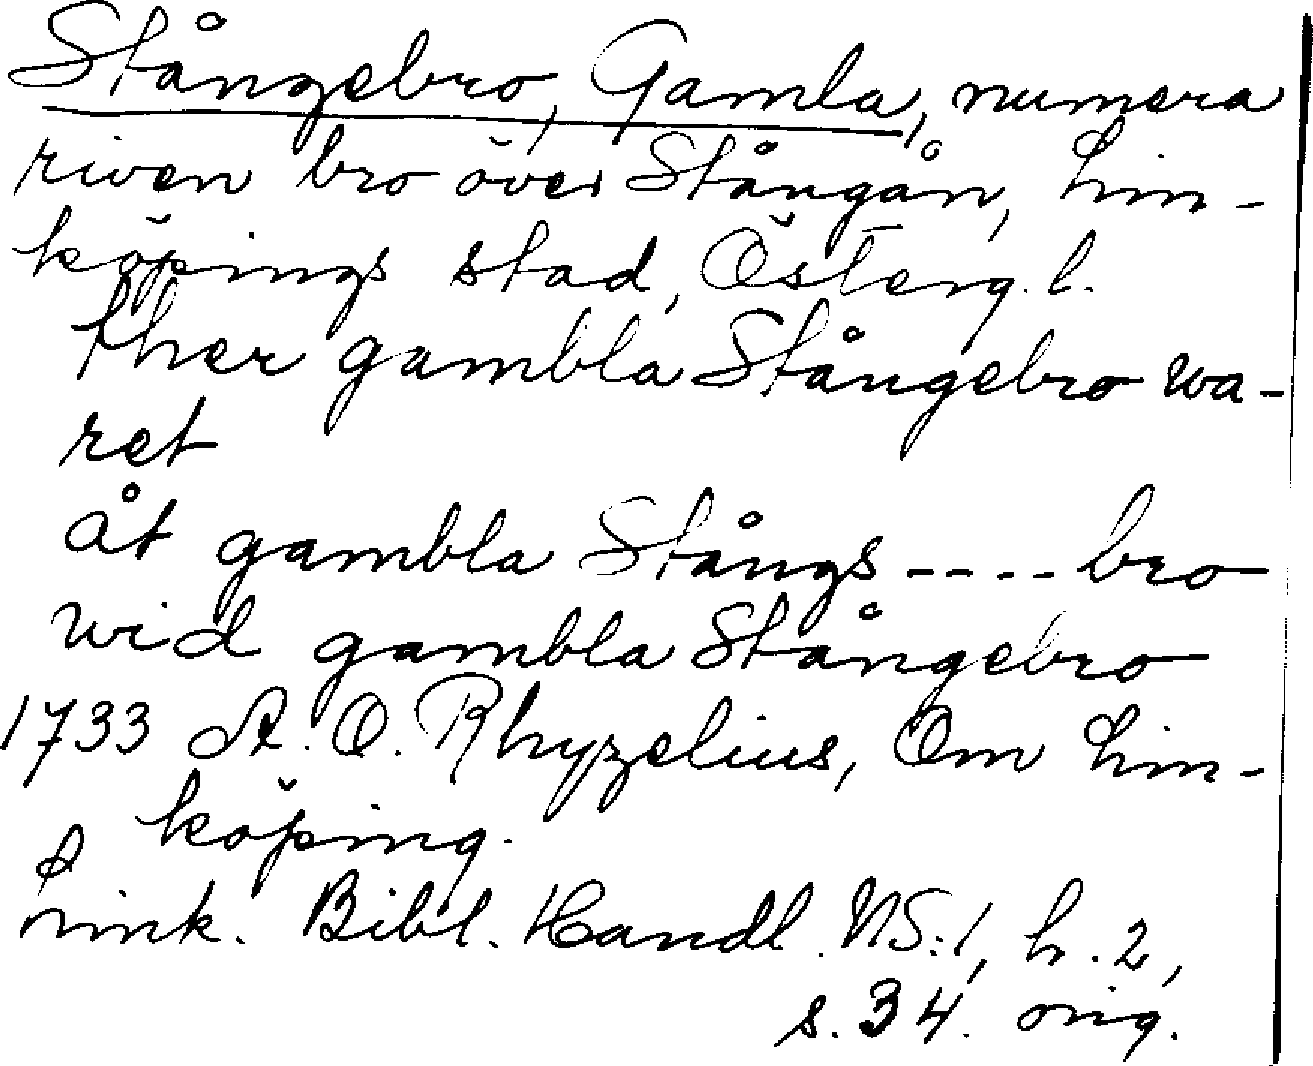 Stångebro, Gamla, numera
riven bro över Stångån, Lin-
köpings stad, Österg. l.
ther gambla Stångebro wa-
ret
åt gambla Stångs ---- bro
wid gambla Stångebro
1733 A. O. Rhyzelius, Om Lin-
köping.
Link. Bibl. Handl. NS:1, h. 2,
s. 34. orig.